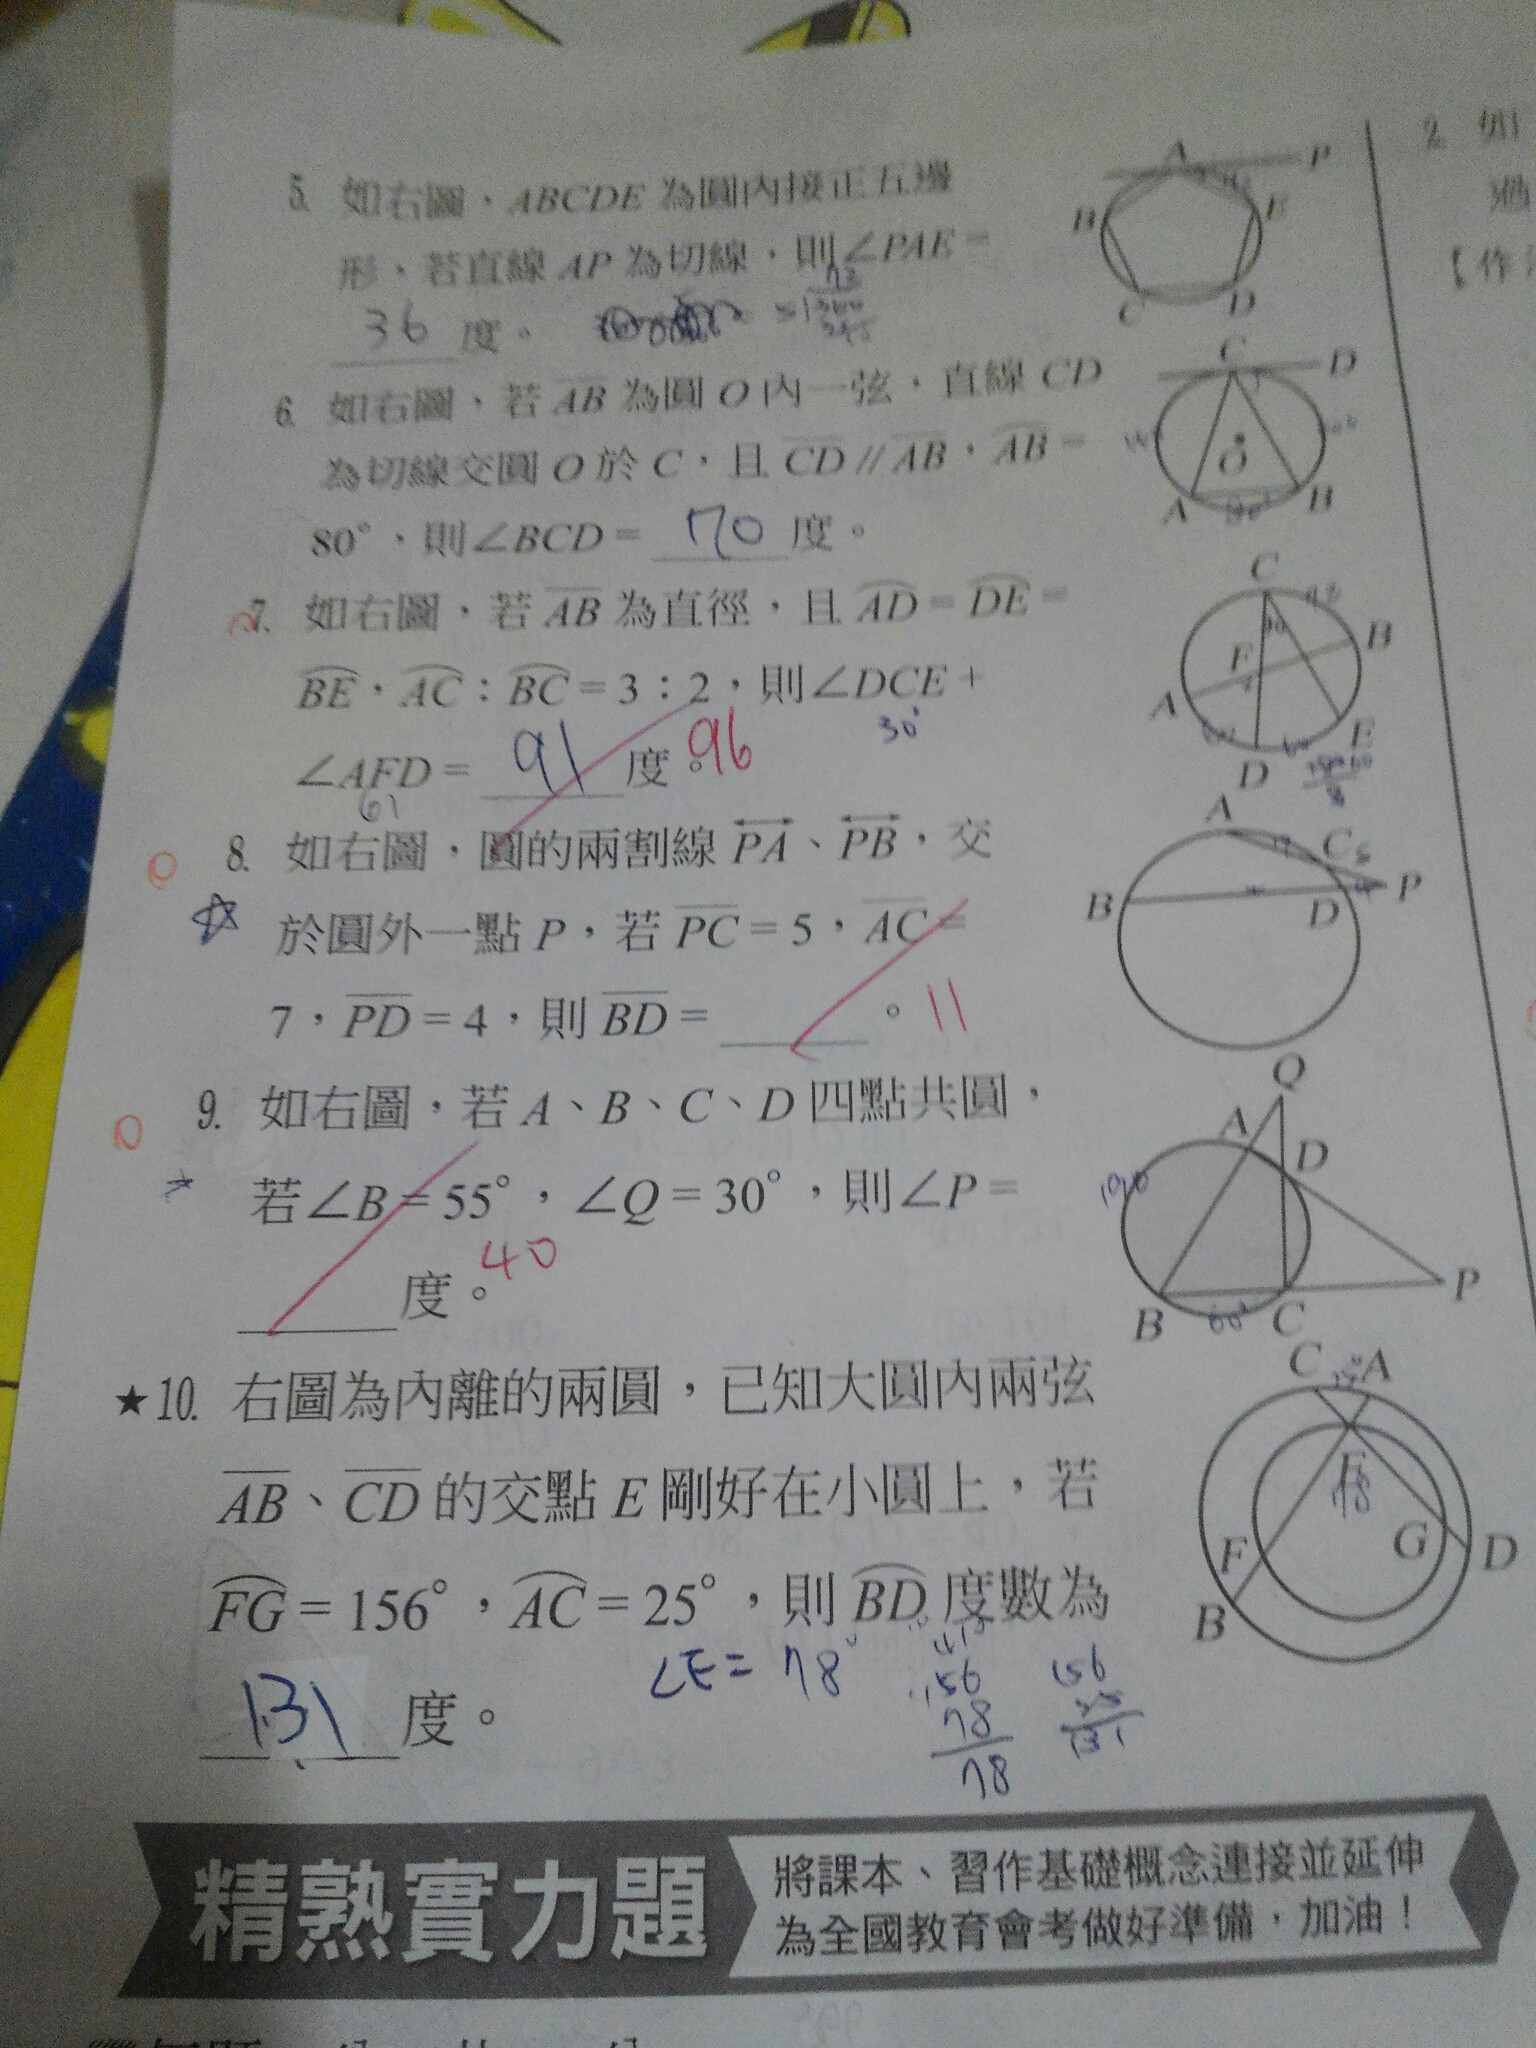 5. 如右圖，ABCDE 為圓內接正五邊
形，若直線 AP 為切線，則∠PAE =
36 度。
6. 如右圖，若 AB 為圓 O 內一弦，直線 CD
為切線交圓 O 於 C，且 CD // AB，AB =
80°，則∠BCD = 70 度。
7. 如右圖，若 AB 為直徑，且 AD = DE =
BE，AC：BC = 3：2，則∠DCE +
30°
∠AFD = 91 度。96
61
8. 如右圖，圓的兩割線 PA、PB，交
於圓外一點 P，若 PC = 5，AC =
7，PD = 4，則 BD = 。11
9. 如右圖，若 A、B、C、D 四點共圓，
若∠B = 55°，∠Q = 30°，則∠P =
度。40
★10. 右圖為內離的兩圓，已知大圓內兩弦
AB、CD 的交點 E 剛好在小圓上，若
FG = 156°，AC = 25°，則 BD 度數為
131 度。
∠E = 78°
156
78
78
156
25
131
A P
B E
C D
C D
O
A B
C
F B
A E
D
A C 5
B D P
Q
A D
B C P
60°
C A
E
78
F G D
B
精熟實力題
將課本、習作基礎概念連接並延伸
為全國教育會考做好準備，加油！
2. 如
過
【作